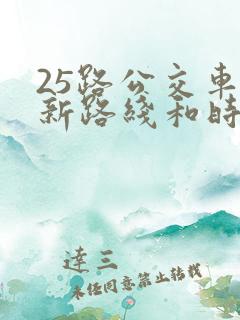 25路公交車
新路綫和時
達三
未经同意禁止转载